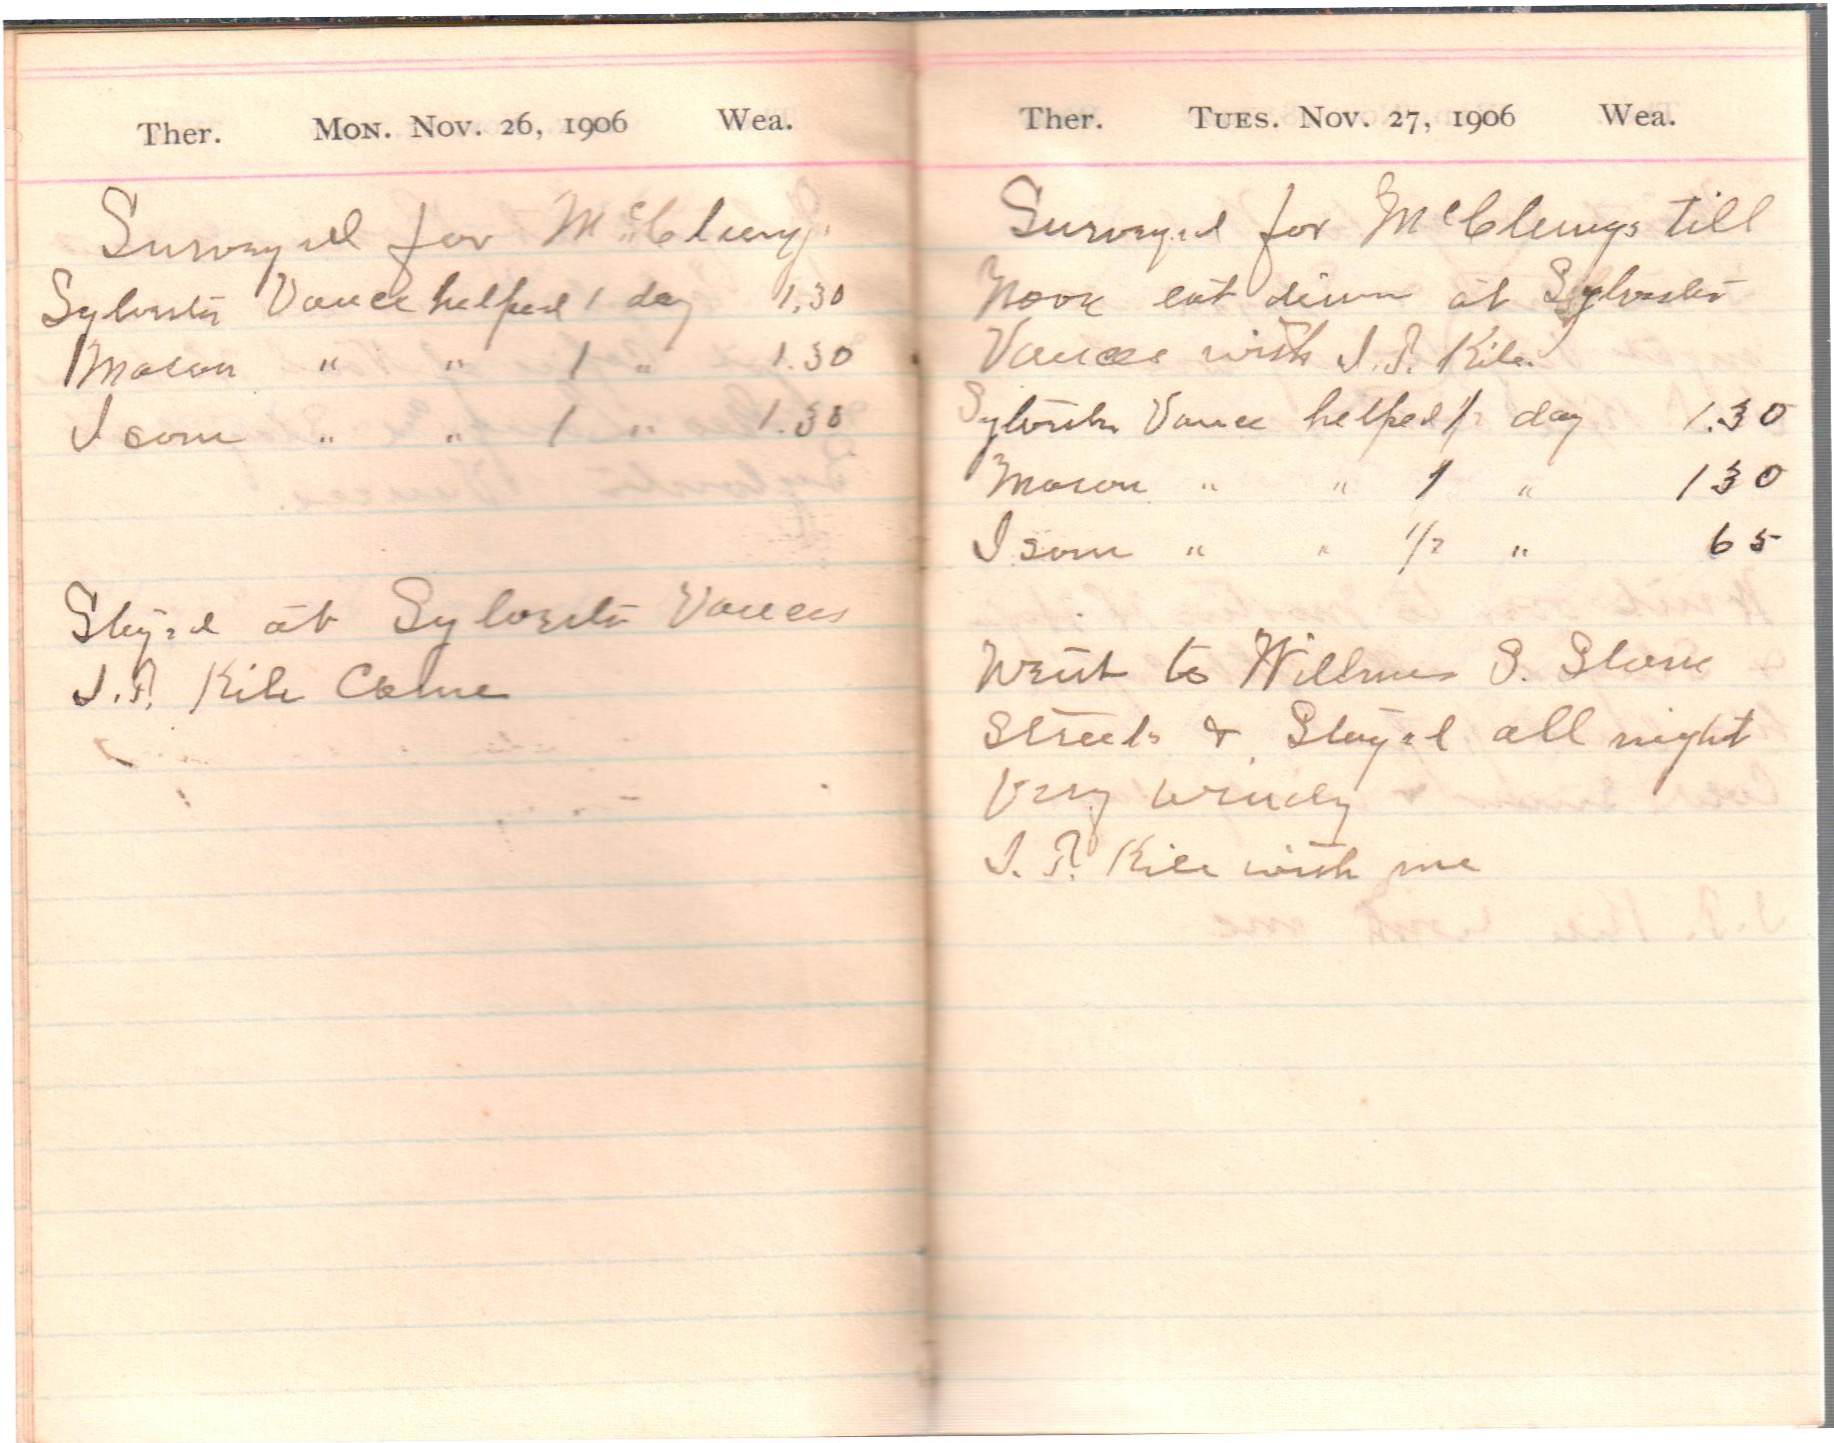 Ther. Mon. Nov. 26, 1906 Wea.
Surveyed for McClungs
Sylvester Vance helped 1 day 1.30
Mason " " 1 " 1.30
Isom " " 1 " 1.30
Stayed at Sylvester Vances
J.P. Kile Came
Ther. Tues. Nov. 27, 1906 Wea.
Surveyed for McClungs till
Noon eat diner at Sylvester
Vances with J.P. Kile.
Sylvester Vance helped 1 day 1.30
Mason " " 1 " 1 30
Isom " " 1/2 " 65
Went to S. Slone
& Stayed all night
Very windy
J.P. Kile with me